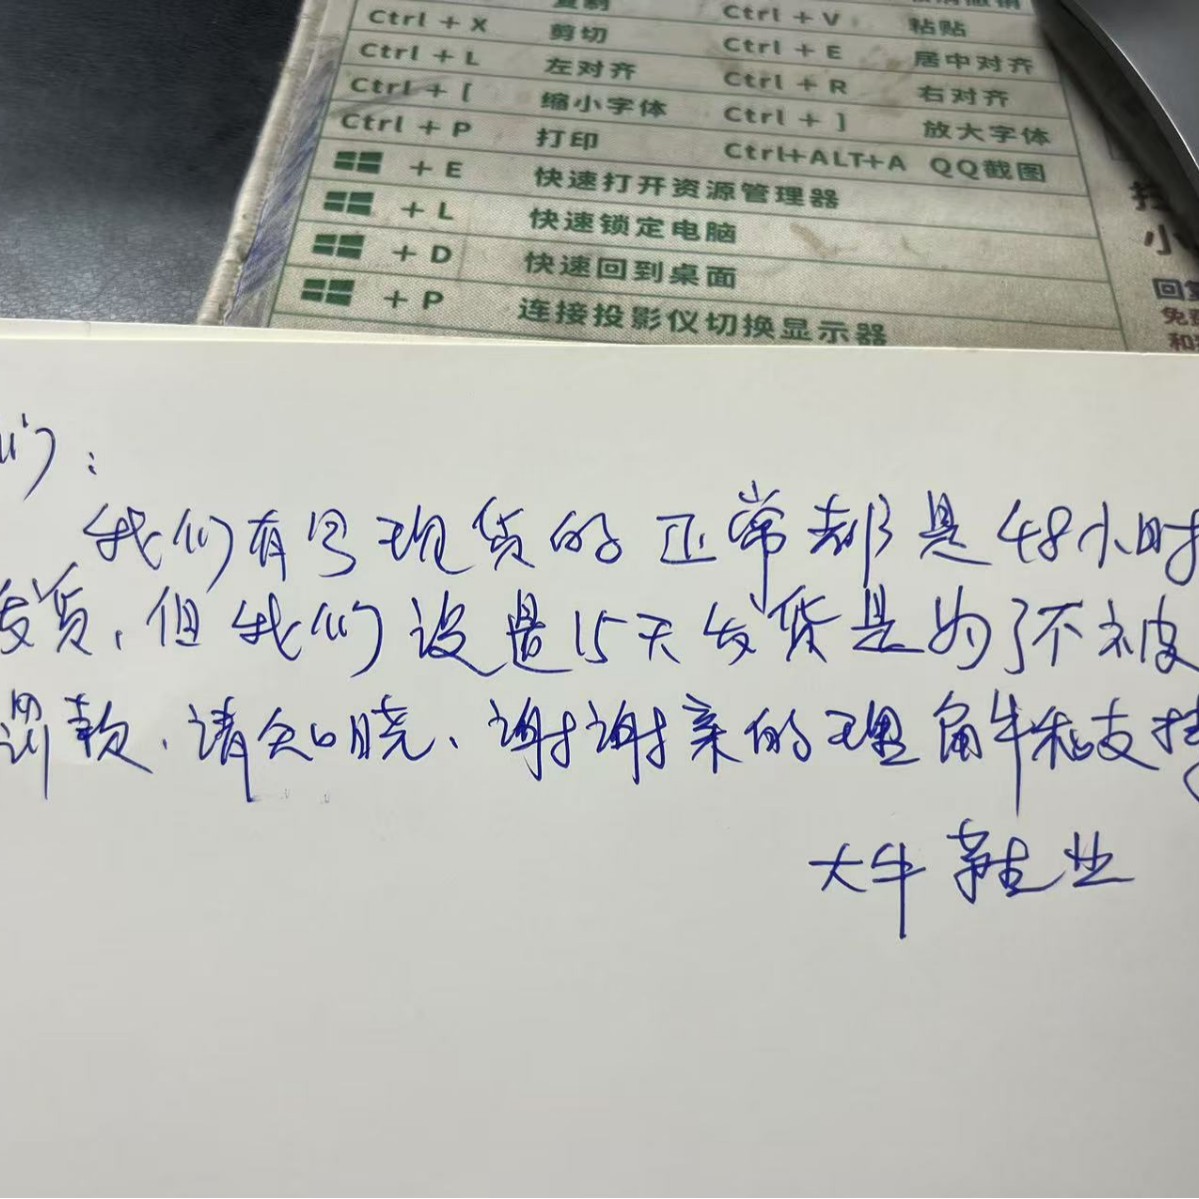 复制 Ctrl + V 粘贴
Ctrl + X 剪切 Ctrl + E 居中对齐
Ctrl + L 左对齐 Ctrl + R 右对齐
Ctrl + [ 缩小字体 Ctrl + ] 放大字体
Ctrl + P 打印 Ctrl+ALT+A QQ截图
+ E 快速打开资源管理器
+ L 快速锁定电脑
+ D 快速回到桌面
+ P 连接投影仪切换显示器
小
回复
免费
和
们:
我们有号现货的正常都是48小时
发货,但我们设置15天发货是为了不被
罚款、请知晓、谢谢亲的理解和支持
大牛鞋业